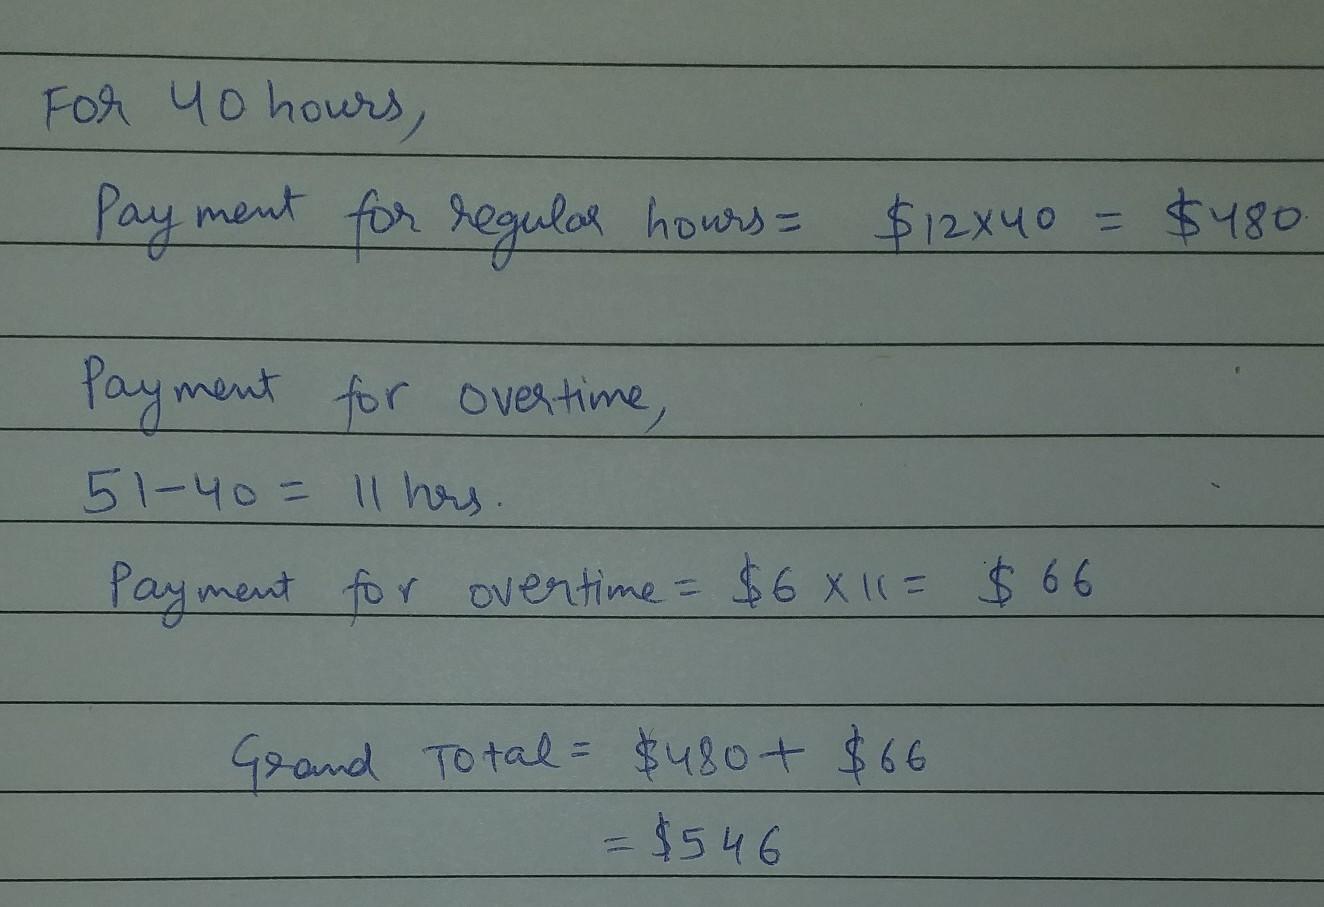 For 40 hours,
Payment for regular hours = $12x40 = $480.
Payment for overtime,
51-40 = 11 hrs.
Payment for overtime = $6 x 11 = $ 66
Grand Total = $480 + $66
= $546